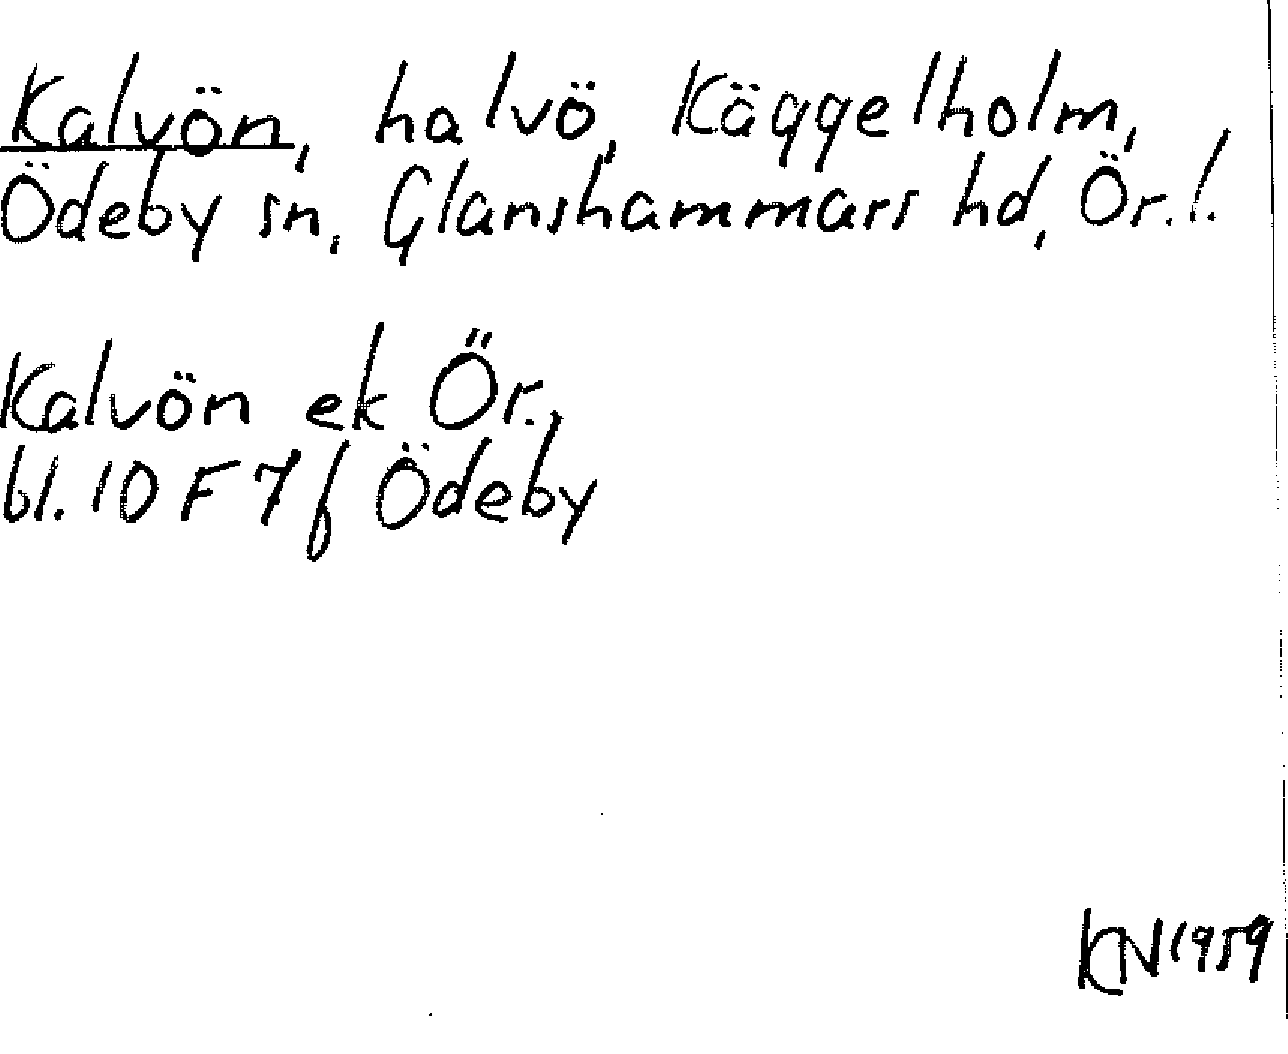 Kalvön, halvö, Käggelholm,
Ödeby sn, Glanshammars hd, Ör. l.
Kalvön ek Ör.,
bl. 10 F 7 f Ödeby
KN 1959